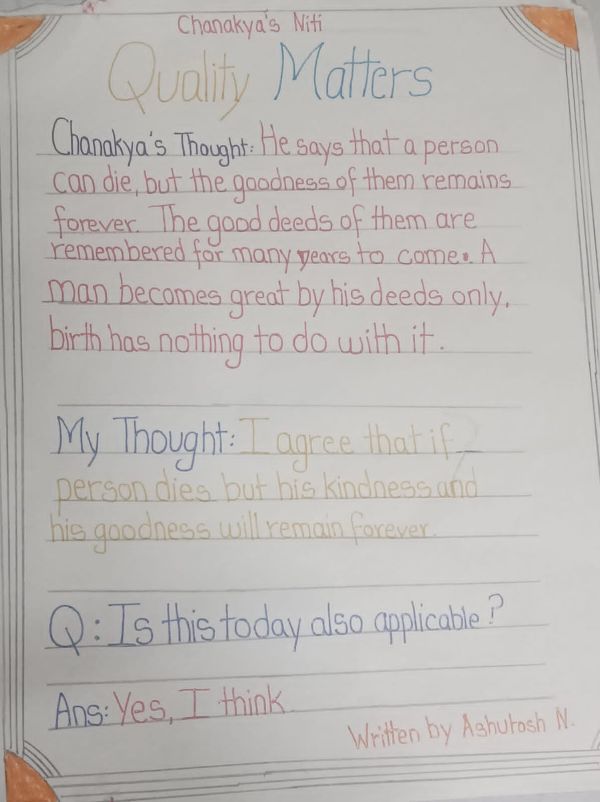 Chanakya's Niti
Quality Matters
Chanakya's Thought: He says that a person
can die, but the goodness of them remains
forever. The good deeds of them are
remembered for many years to come. A
man becomes great by his deeds only,
birth has nothing to do with it.
My Thought: I agree that if
person dies but his kindness and
his goodness will remain forever.
Q: Is this today also applicable?
Ans: Yes, I think
Written by Ashutosh N.